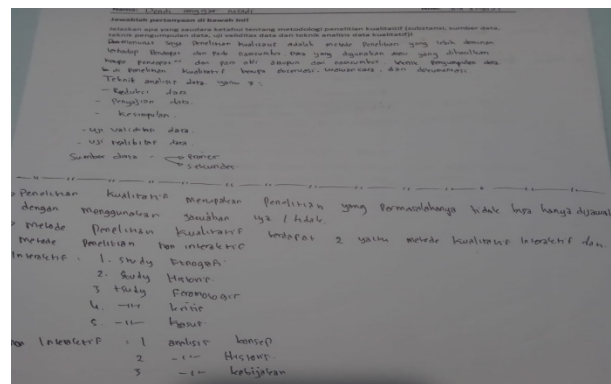 Nama:
Jawablah pertanyaan di bawah ini!
Jelaskan apa yang saudara ketahui tentang metodologi penelitian kualitatif (substansi, sumber data,
teknik pengumpulan data, uji validitas data dan teknik analisis data kualitatif)!
saya Penelitian kualitatif adalah metode Penelitian yang lebih dominan
terhadap Pendapat dari Para narasumber. Data yang digunakan dan yang dihasilkan
dari para ahli ataupun dari narasumber. teknik Pengumpulan data
Penelitian kualitatif berupa observasi, wawancara, dan dokumentasi.
Teknik analisis data yaitu :
- Reduksi data
- Penyajian data.
- kesimpulan.
- Uji validitas data.
- Uji data.
Sumber data - Primer
sekunder
Penelitian kualitatif merupakan Penelitian yang Permasalahanya tidak bisa hanya
dengan menggunakan jawaban iya / tidak.
metode Penelitian kualitatif terdapat 2 yaitu metode kualitatif Interaktif dan
metode Penelitian non interaktif
Interaktif : 1. Study Etnografi
2. Study Historis
3 Study
4. -11- kritis
5. -11- kasus
non Interaktif : 1 analisis konsep
2 -11- Historis
3 -11- kebijakan